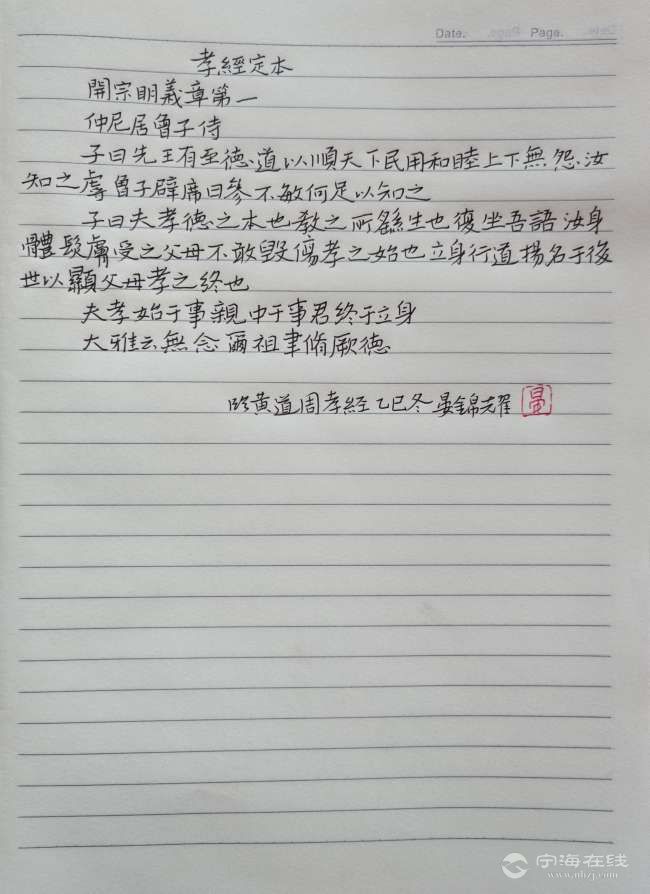 Date. Page.
孝經定本
開宗明義章第一
仲尼居曾子侍
子曰先王有至德道以順天下民用和睦上下無怨汝
知之虖曾子辟席曰參不敏何足以知之
子曰夫孝德之本也教之所繇生也復坐吾語汝身
體髮膚受之父母不敢毀傷孝之始也立身行道揚名于後
世以顯父母孝之終也
夫孝始于事親中于事君终于立身
大雅云無念爾祖聿脩厥德
臨黄道周孝經乙巳冬晏錦耀
晏
宁海在线
www.nhzj.com